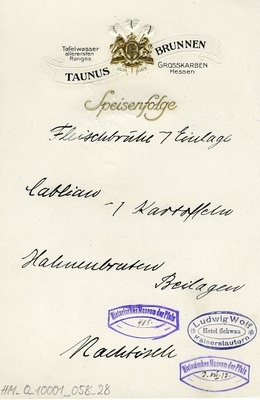 Tafelwasser
allerersten
Ranges
TAUNUS BRUNNEN
GROSSKARBEN
Hessen
Speisenfolge
Fleischbrühe 7 Einlage
Cabliau
-/ Kartoffeln
Hahnenbraten
Beilagen
Nachtisch
Historisches Museum der Pfalz
Ludwig Wolf
Hotel Schwan
Kaiserslautern
Historisches Museum der Pfalz
HM_0_10001_058_28